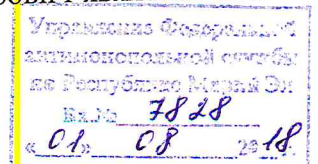 Управление Федеральной
антимонопольной службы
по Республике Марий Эл
Вх.№ 7828
« 01 » 08 2018